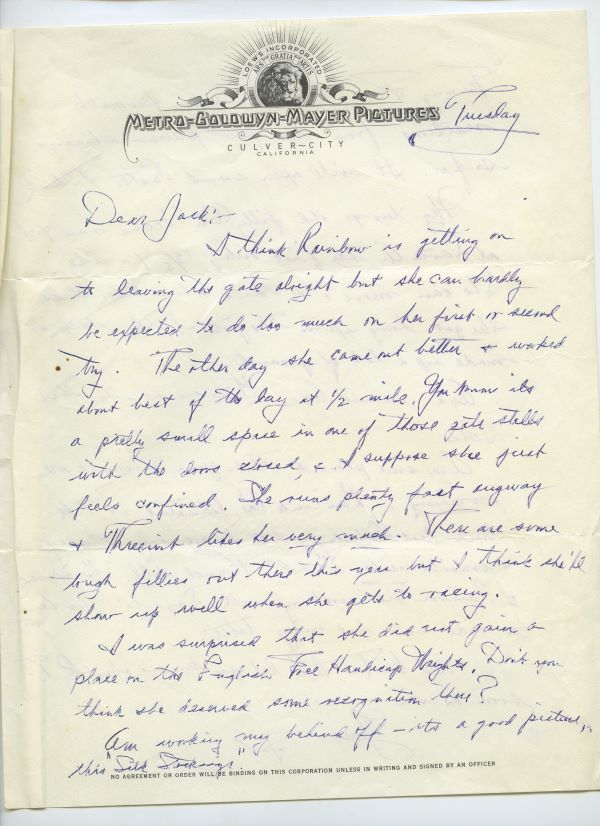 LOEW'S INCORPORATED
ARS GRATIA ARTIS
METRO-GOLDWYN-MAYER PICTURES
Tuesday
CULVER-CITY
CALIFORNIA
Dear Jack:-
I think Rainbow is getting on
to leaving the gate alright but she can hardly
be expected to do too much on her first or second
try. The other day she came out better & worked
about best of the day at 1/2 mile. You know its
a pretty small space in one of those gate stalls
with the doors closed, & I suppose she just
feels confined. She runs plenty fast anyway
& likes her very much. There are some
tough fillies out there this year but I think she'll
show up well when she gets to racing.
I was surprised that she did not gain a
place on the English Free Handicap Weights. Don't you
think she deserved some recognition there?
Am working my behind off - its a good picture,
this "Silk Stockings".
NO AGREEMENT OR ORDER WILL BE BINDING ON THIS CORPORATION UNLESS IN WRITING AND SIGNED BY AN OFFICER